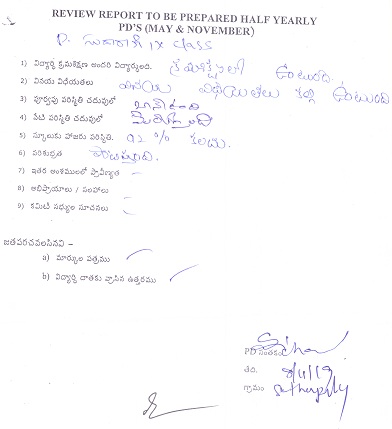 REVIEW REPORT TO BE PREPARED HALF YEARLY
PD'S (MAY & NOVEMBER)
P. సుజాత IX class
1) విద్యార్థి క్రమశిక్షణ అందరి విద్యార్థులది. క్రమశిక్షణలో ఉంటుంది
2) వినయ విధేయతలు వినయ విధేయతలు కల్గి ఉంటుంది
3) పూర్వపు పరిస్థితి చదువులో బాగుంది
4) నేటి పరిస్థితి చదువులో
5) స్కూలుకు హాజరు పరిస్థితి. 92 % కలదు.
6) పరిశుభ్రత పాటిస్తుంది.
7) ఇతర అంశములలో ప్రావీణ్యత -
8) అభిప్రాయాలు / సలహాలు -
9) కమిటీ సభ్యుల సూచనలు -
జతపరచవలసినవి –
a) మార్కుల పత్రము
b) విద్యార్థి దాతకు వ్రాసిన ఉత్తరము
PD సంతకం
తేది. 8/11/19
గ్రామం